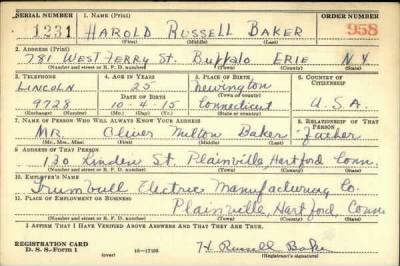 SERIAL NUMBER 1. NAME (Print) ORDER NUMBER
1231 HAROLD RUSSELL BAKER 958
(First) (Middle) (Last)
2. ADDRESS (Print)
781 WEST FERRY St. Buffalo ERIE N.Y.
(Number and street or R. F. D. number) (Town) (County) (State)
3. TELEPHONE 4. AGE IN YEARS 5. PLACE OF BIRTH 6. COUNTRY OF CITIZENSHIP
LINCOLN 25 Newington
DATE OF BIRTH (Town or county)
9728 10-4-15 Connecticut U.S.A.
(Exchange) (Number) (Mo.) (Day) (Yr.) (State or country)
7. NAME OF PERSON WHO WILL ALWAYS KNOW YOUR ADDRESS 8. RELATIONSHIP OF THAT PERSON
MR. Oliver Milton Baker Father
(Mr., Mrs., Miss) (First) (Middle) (Last)
9. ADDRESS OF THAT PERSON
130 Linden St. Plainville, Hartford Conn.
(Number and street or R. F. D. number) (Town) (County) (State)
10. EMPLOYER'S NAME
Trumbull Electric Manufacturing Co.
11. PLACE OF EMPLOYMENT OR BUSINESS
Plainville, Hartford Conn
(Number and street or R. F. D. number) (Town) (County) (State)
I AFFIRM THAT I HAVE VERIFIED ABOVE ANSWERS AND THAT THEY ARE TRUE.
REGISTRATION CARD
D. S. S. Form 1 (over) 16-17105 H. Russell Baker
(Registrant's signature)